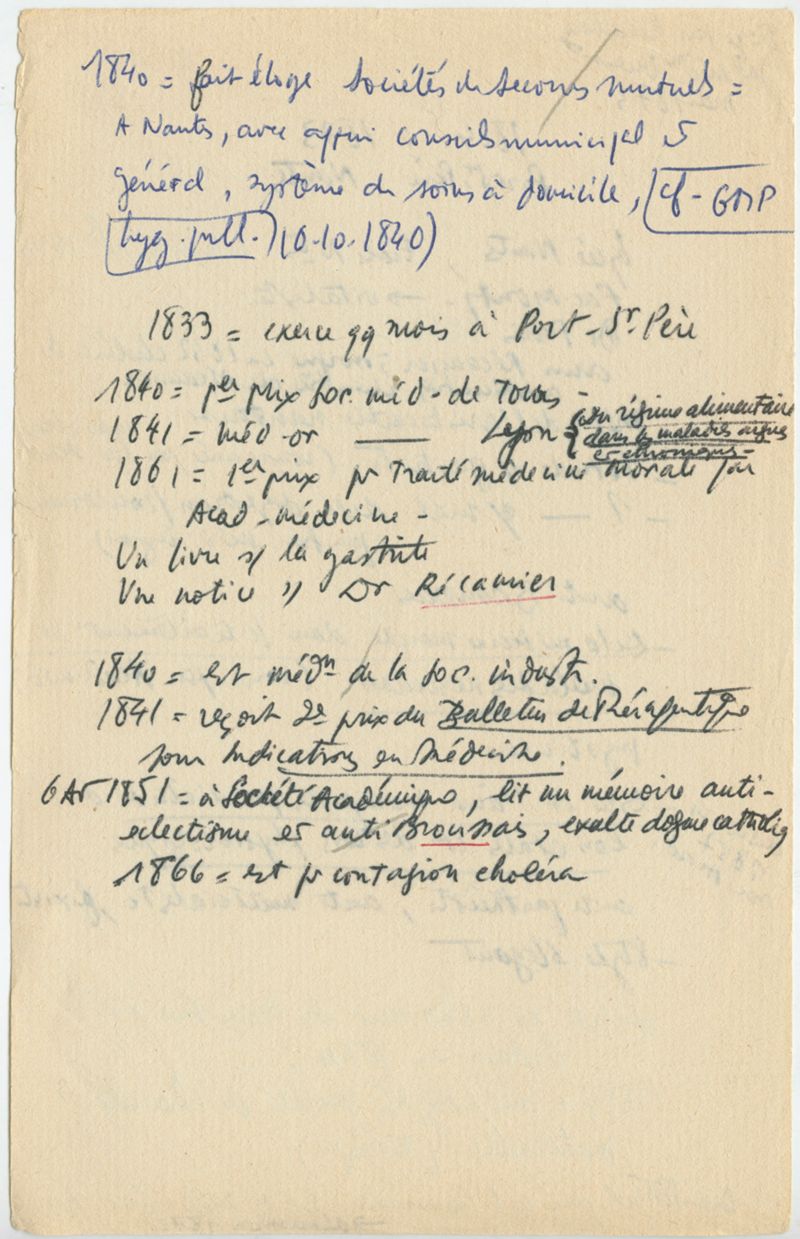 1840 = fait éloge Sociétés de Secours mutuels =
A Nantes, avec appui conseils municipal et
général, système de soins à domicile, (cf - GMP
hyg. publ.) 10.10.1840)
1833 = exerce qq mois à Port-St-Père
1840 = 1er prix Soc. méd - de Tours -
1841 = méd - or —— Lyon { du régime alimentaire
dans les maladies aigues
et chroniques -
1861 = 1er prix pr Traité médecine morale par
Acad - médecine -
Un livre s/ la gastrite
Une notice s/ Dr Récamier
1840 = est médn de la Soc. industr.
1841 = reçoit 2e prix du Bulletin de Thérapeutique
pour Indications en Médecine.
6 At 1851 = à Société Académique, lit un mémoire anti-
eclectisme et anti Broussais, exalte dogme catholiq
1866 = est pr contagion choléra